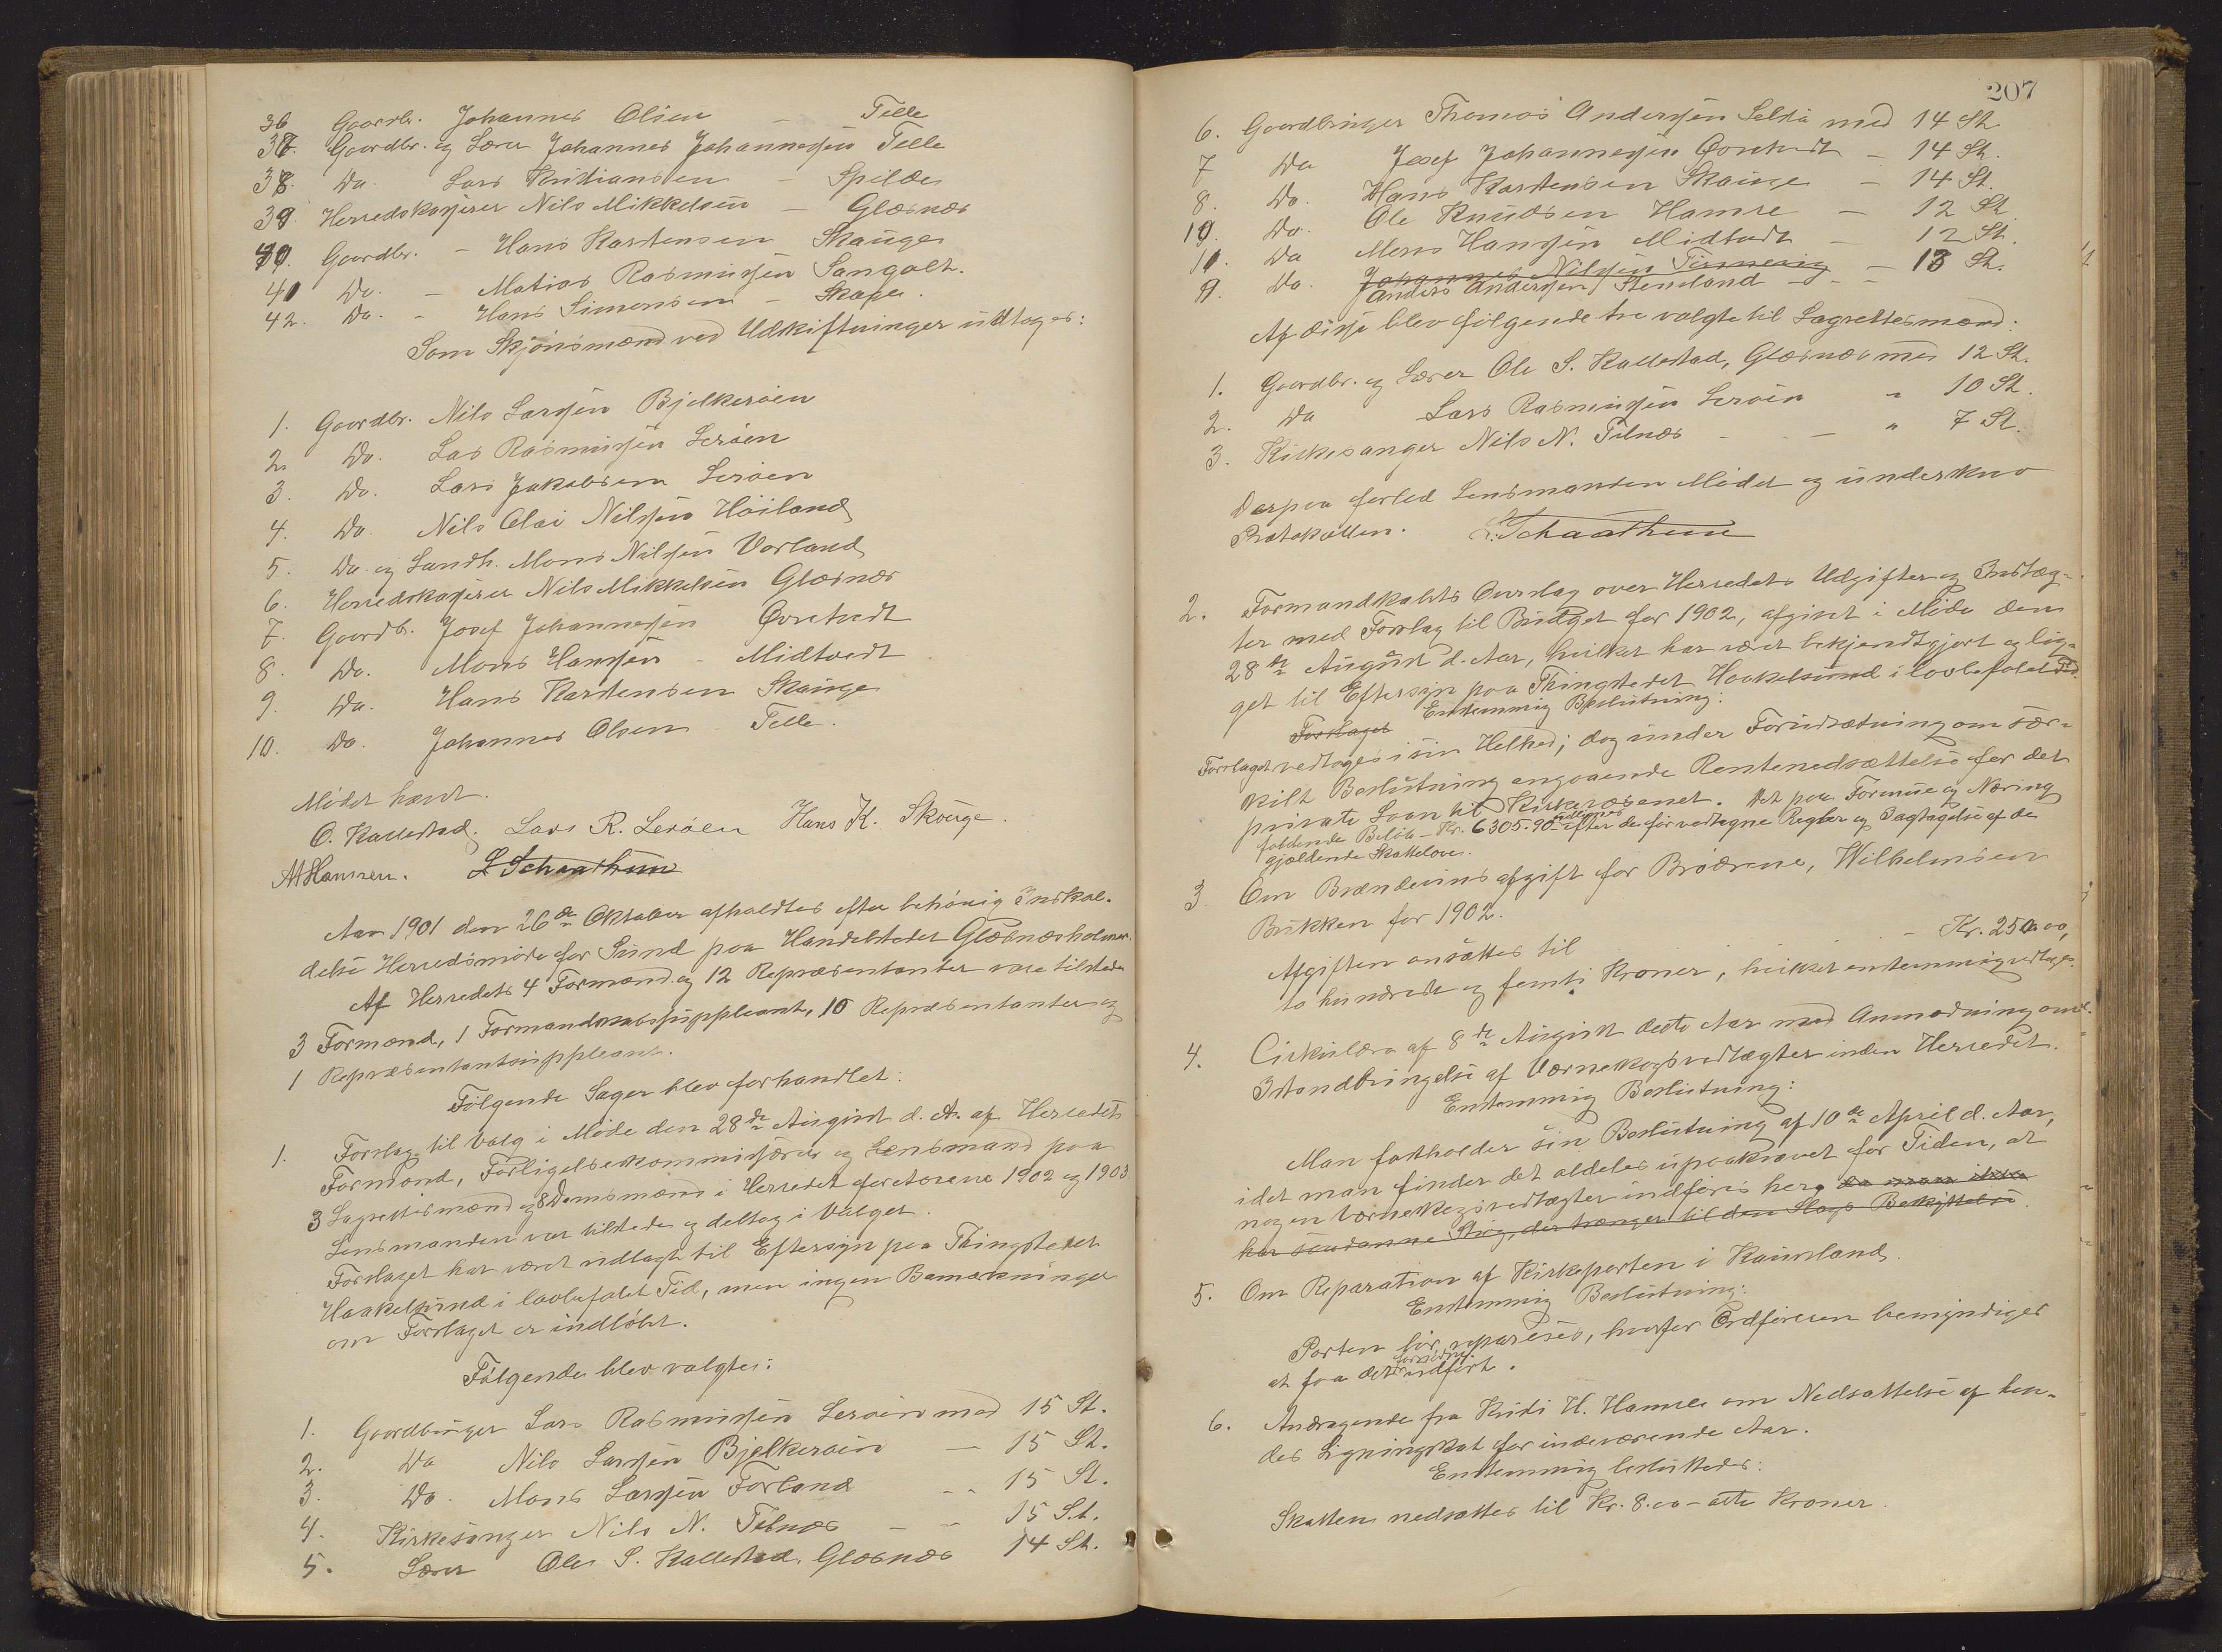 36 Gaardbr. Johannes Olsen - Telle
37. Gaardbr. og Lærer Johannes Johannessen Telle
38. Do. Lars Kristiansen - Spilde
39. Herredskasserer Nils Mikkelsen - Glæsnæs
40. Gaardbr. - Hans Karstensen Skauge
41 Do. - Matias Rasmussen Sangolt.
42. Do. - Hans Simonsen - Skage.
Som Skjønsmænd ved Udskiftninger udtoges:
1. Gaardbr. Nils Larssen Bjelkerøen
2. Do. Lars Rasmussen Lerøen
3. Do. Lars Jakobsen Lerøen
4. Do. Nils Olai Nilssen Høiland
5. Do. og Landh. Mons Nilssen Vorland
6. Herredskasserer Nils Mikkelsen Glæsnæs
7. Gaardb. Josef Johannessen Øvretvedt
8. Do. Mons Hanssen - Midtvedt
9. Do. Hans Karstensen Skauge
10. Do. Johannes Olsen Telle.
Mødet hævet.
O. Kallestad. Lars R. Lerøen Hans K. Skauge.
A Hansen. L Schaathun
Aar 1901 den 26de Oktober afholdtes efter behørig Indkal-
delse Herredsmøde for Sund paa Handelstedet Glæsnæsholmen.
Af Herredets 4 Formænd og 12 Repræsentanter vare tilstede
3 Formænd, 1 Formandskabssuppleant, 10 Repræsentanter og
1 Repræsentantsuppleant.
Følgende Sager blev forhandlet:
1. Forslag til Valg i Møde den 28de August d. A. af Herredets
Formænd, Forligelseskommissærer og Lensmand paa
3 Lagrettesmænd og 8 Domsmænd i Herredet for Aarene 1902 og 1903
Lensmanden var tilstede og deltog i Valget.
Forslaget har været udlagt til Eftersyn paa Thingstedet
Haakelsund i lovbefalet Tid, men ingen Bemærkninger
om Forslaget er indløbet.
Følgende blev valgte:
1. Gaardbruger Lars Rasmussen Lerøen med 15 St.
2. Do Nils Larssen Bjelkerøen — 15 St.
3. Do. Mons Larssen Forland - - 15 St.
4. Kirkesanger Nils N. Telnæs - - 15 St.
5. Lærer Ole S. Kallestad, Glæsnæs 14 St.
207
6. Gaardbruger Thomas Anderssen Selstø med 14 St.
7 Do Josef Johannessen Øvretvedt - 14 St.
8. Do. Hans Karstensen Skauge - 14 St.
10. Do. Ole Knudsen Hamre - 12 St.
11. Do Mons Hanssen Midtvedt - 12 St.
9. Do. Johannes Nilssen - 13 St.
Anders Anderssen Steinsland - - -
Af disse blev følgende tre valgte til Lagrettesmænd:
1. Gaardbr. og Lærer Ole S. Kallestad, Glæsnæs med 12 St.
2. Do Lars Rasmussen Lerøen " 10 St.
3. Kirkesanger Nils N. Telnæs - - - " 7 St.
Derpaa forlod Lensmanden Mødet og underskrev
Protokollen. L. Schaathun
2. Formandskabets Overslag over Herredets Udgifter og Indtæg-
ter med Forslag til Budget for 1902, afgivet i Møde den
28de August d. Aar, hvilket har været bekjendtgjort og lig-
get til Eftersyn paa Thingstedet Haakelsund i lovbefalet Tid.
Enstemmig Beslutning:
Forslaget
Forslaget vedtages i sin Helhed; dog under Forudsætning om sær-
skilt Beslutning angaaende Rentenedsættelse for det
private Laan til Kirkevæsenet. Det paa Formue og Næring
faldende Beløb - Kr. 6305.90 udlignes efter de før vedtagne Regler og Iagttagelse af de
gjældende Skattelove.
3. Om Brændevinsafgift for Brødrene, Wilhelmsen
Bukken for 1902.
Afgiften ansættes til - Kr. 250.00,
to hundrede og femti Kroner, hvilket enstemmig vedtoges.
4. Cirkulære af 8de August dette Aar med Anmodning om
Istandbringelse af Værneskogsvedtægter inden Herredet.
Enstemmig Beslutning:
Man fastholder sin Beslutning af 10de April d. Aar,
idet man finder det aldeles upaakrævet for Tiden, at
nogen Værneskogsvedtægter indføres her, da man ikke
har saadanne Skog, der trænger til den Slags Beskyttelse.
5. Om Reparation af Kirkeporten i Kausland.
Enstemmig Beslutning:
Porten bør repareres, hvorfor Ordføreren bemyndiges
at faa det fornødne udført.
6. Andragende fra Kristi H. Hamre om Nedsættelse af hen-
des Ligningsskat for indeværende Aar.
Enstemmig besluttedes:
Skatten nedsættes til Kr. 8.00 - otte Kroner.